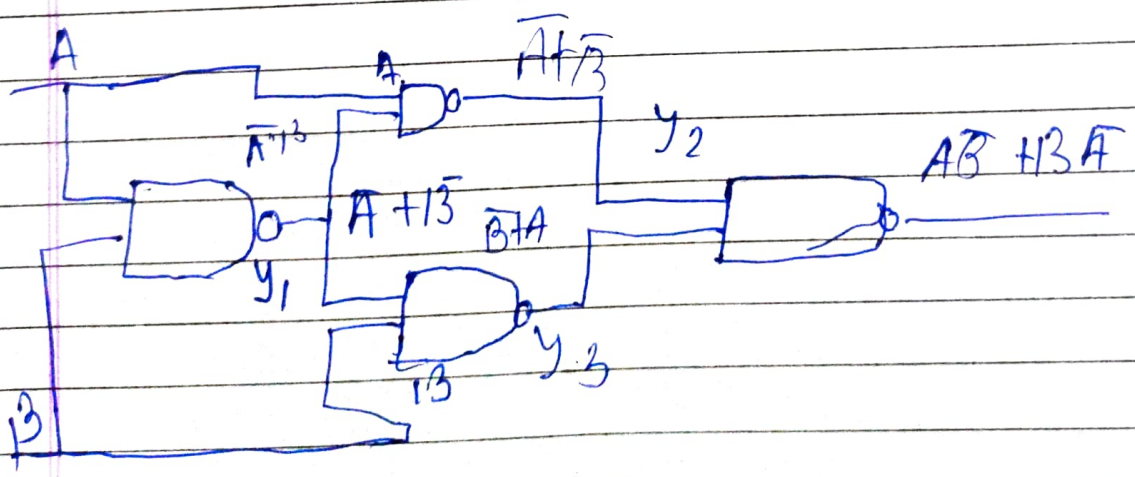 A
A
A̅+B̅
A̅+B
y2
AB̅ + BA̅
A̅ + B̅
B̅+A
y1
y3
B
B